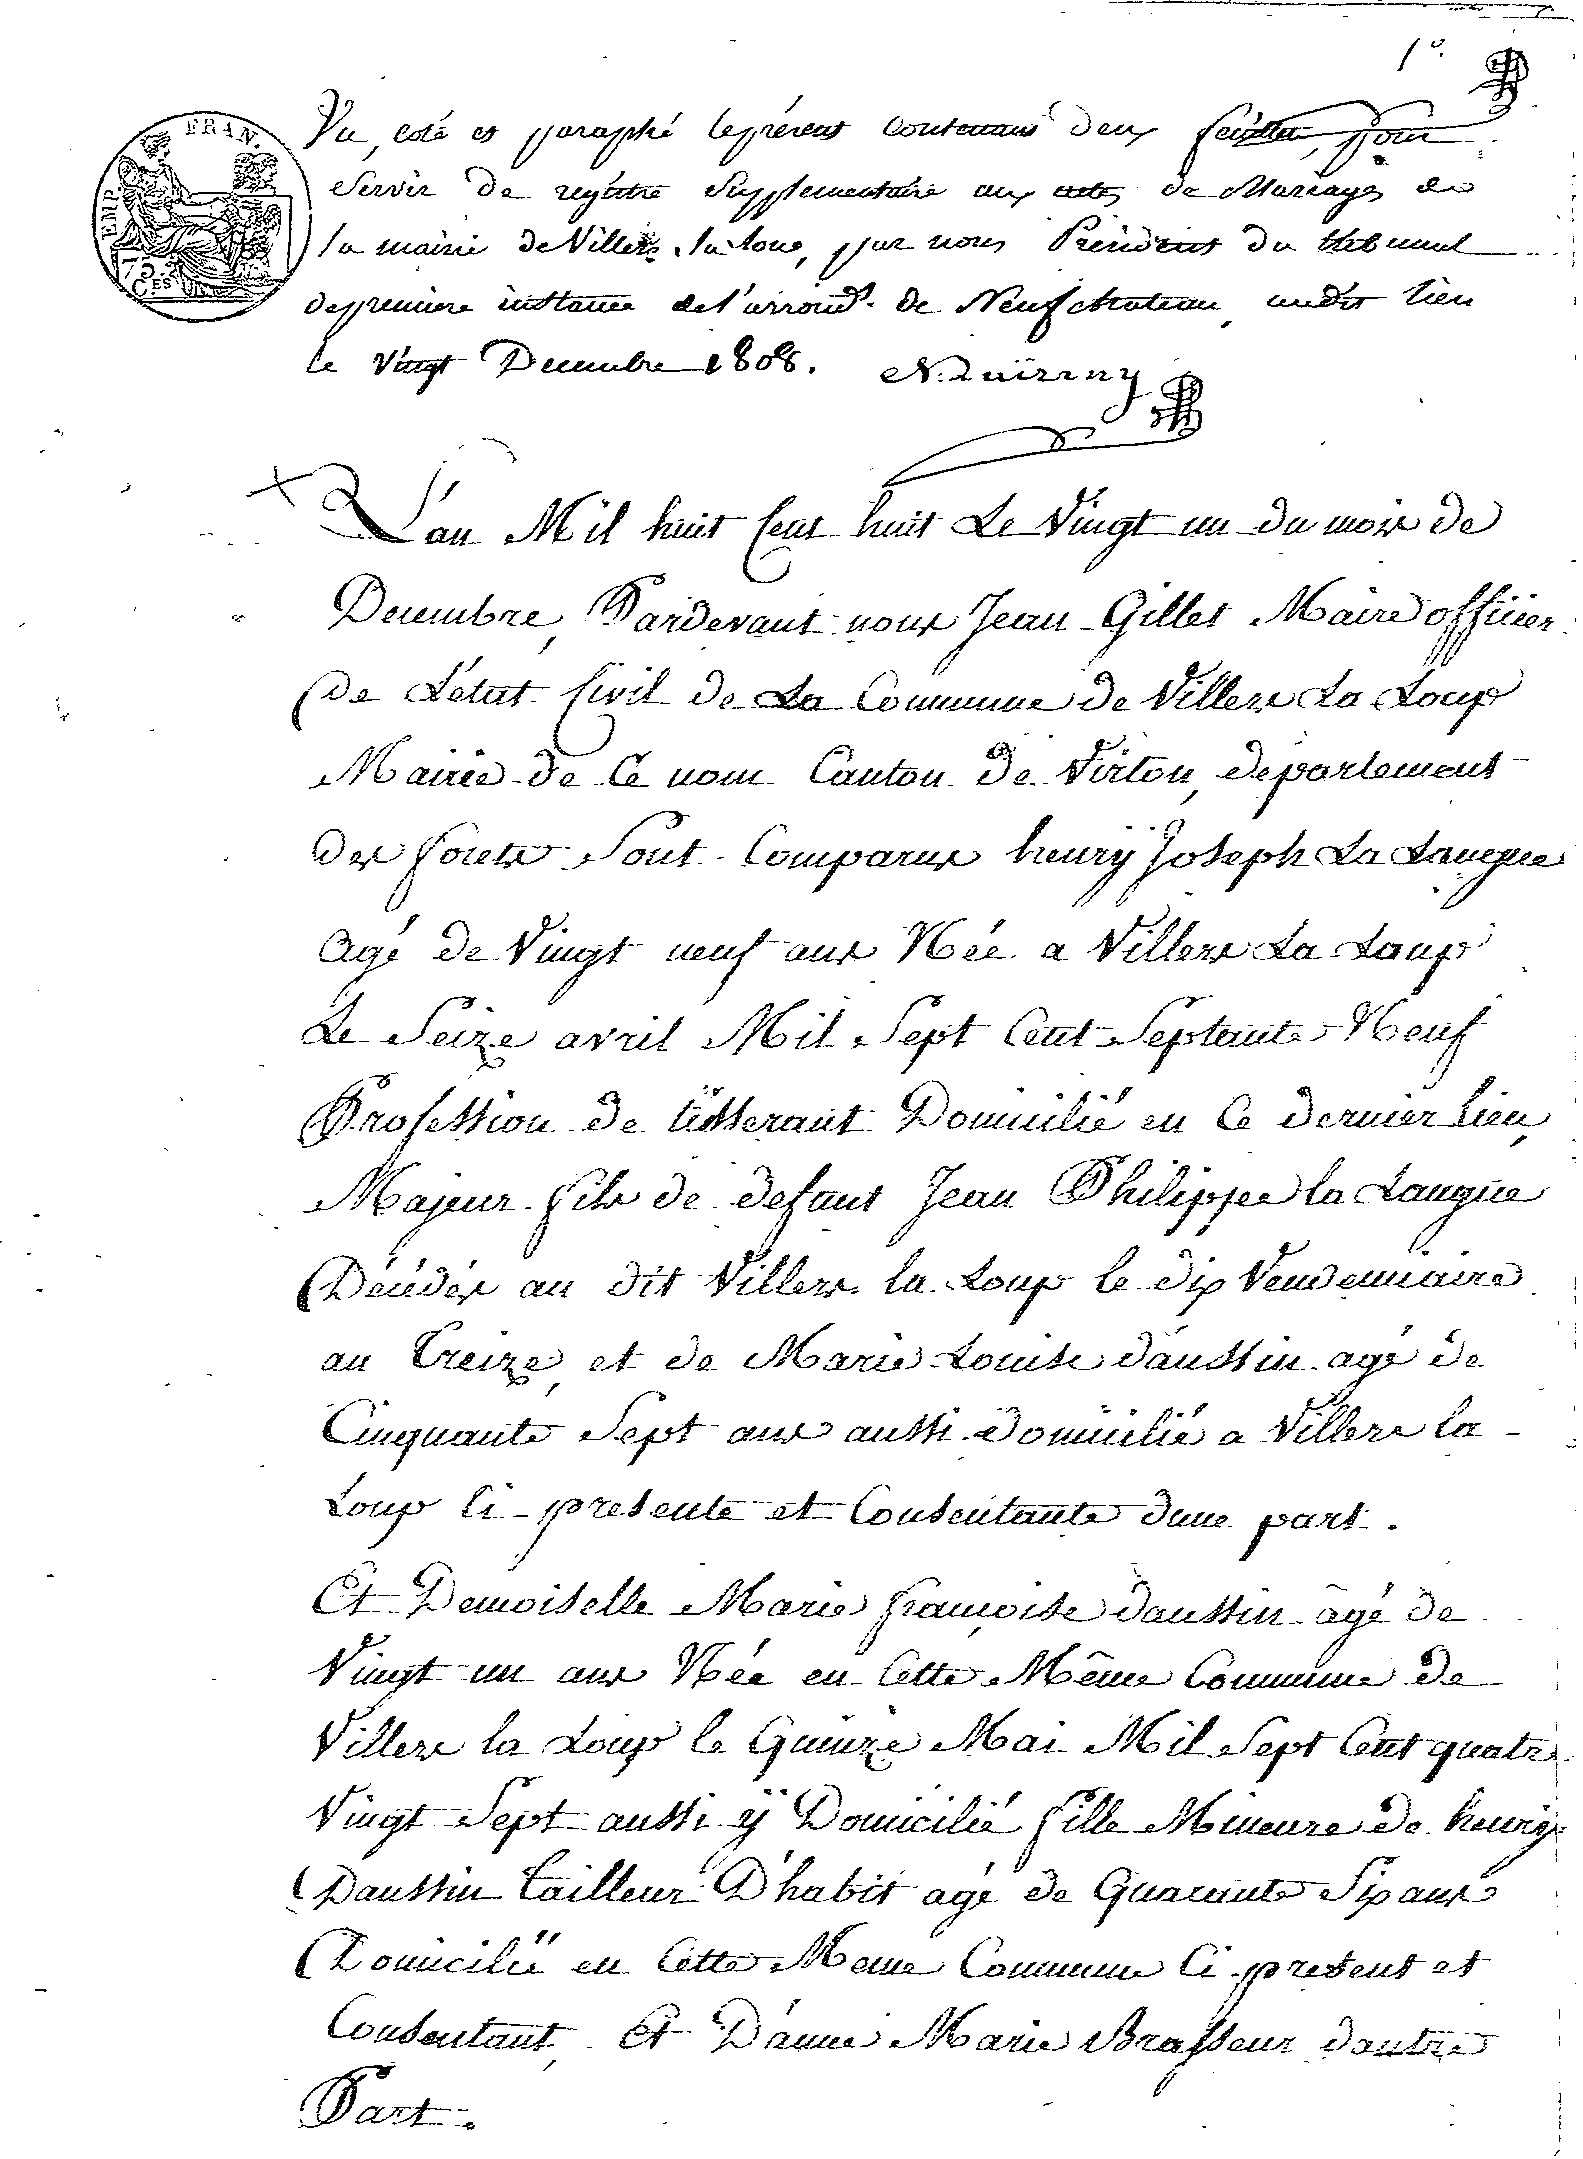 1º
EMP. FRAN.
75
C.ES
Vu, coté et paraphé le présent contenant deux feuillets, pour
servir de régistre supplementaire aux actes de Mariages de
la mairie de Villers la loue, par nous Président du tribunal
de premiere instance de l'arrond.t de Neufchateau, audit lieu
le vingt Decembre 1808.
L'an Mil huit Cent huit Le Vingt un du mois de
Decembre, Pardevant nous Jean Gillet Maire officier
de L'état Civil de La Commune de Villers La Loup
Mairie de Ce nom Canton de Virton, departement
des forets Sont Comparus henrÿ Joseph La Langue
Agé de Vingt neuf ans Née a Villers La Loup
Le Seize avril Mil Sept Cent Septante Neuf
Profession de tisserant Domicilié en Ce dernier lieu,
Majeur fils de defunt Jean Philippe la Langue
Décédés au dit Villers la Loup le dix Vendemiaire
an Treize, et de Marie Louise daussin agé de
Cinquante Sept ans aussi domicilié a Villers la
Loup Ci-presente et Consentante dune part.
Et Demoiselle Marie françoise daussin âgé de
Vingt un ans Née en Cette Même Commune de
Villers la Loup le Quinze Mai Mil Sept Cent quatre
Vingt Sept aussi ÿ Domicilié fille Mineure de henrij
Daussin Tailleur D'habit agé de Quarante Six ans
Domicilié en Cette Meme Commune Ci-present et
Consentant, Et D'anne Marie Brasseur dautre
Part.